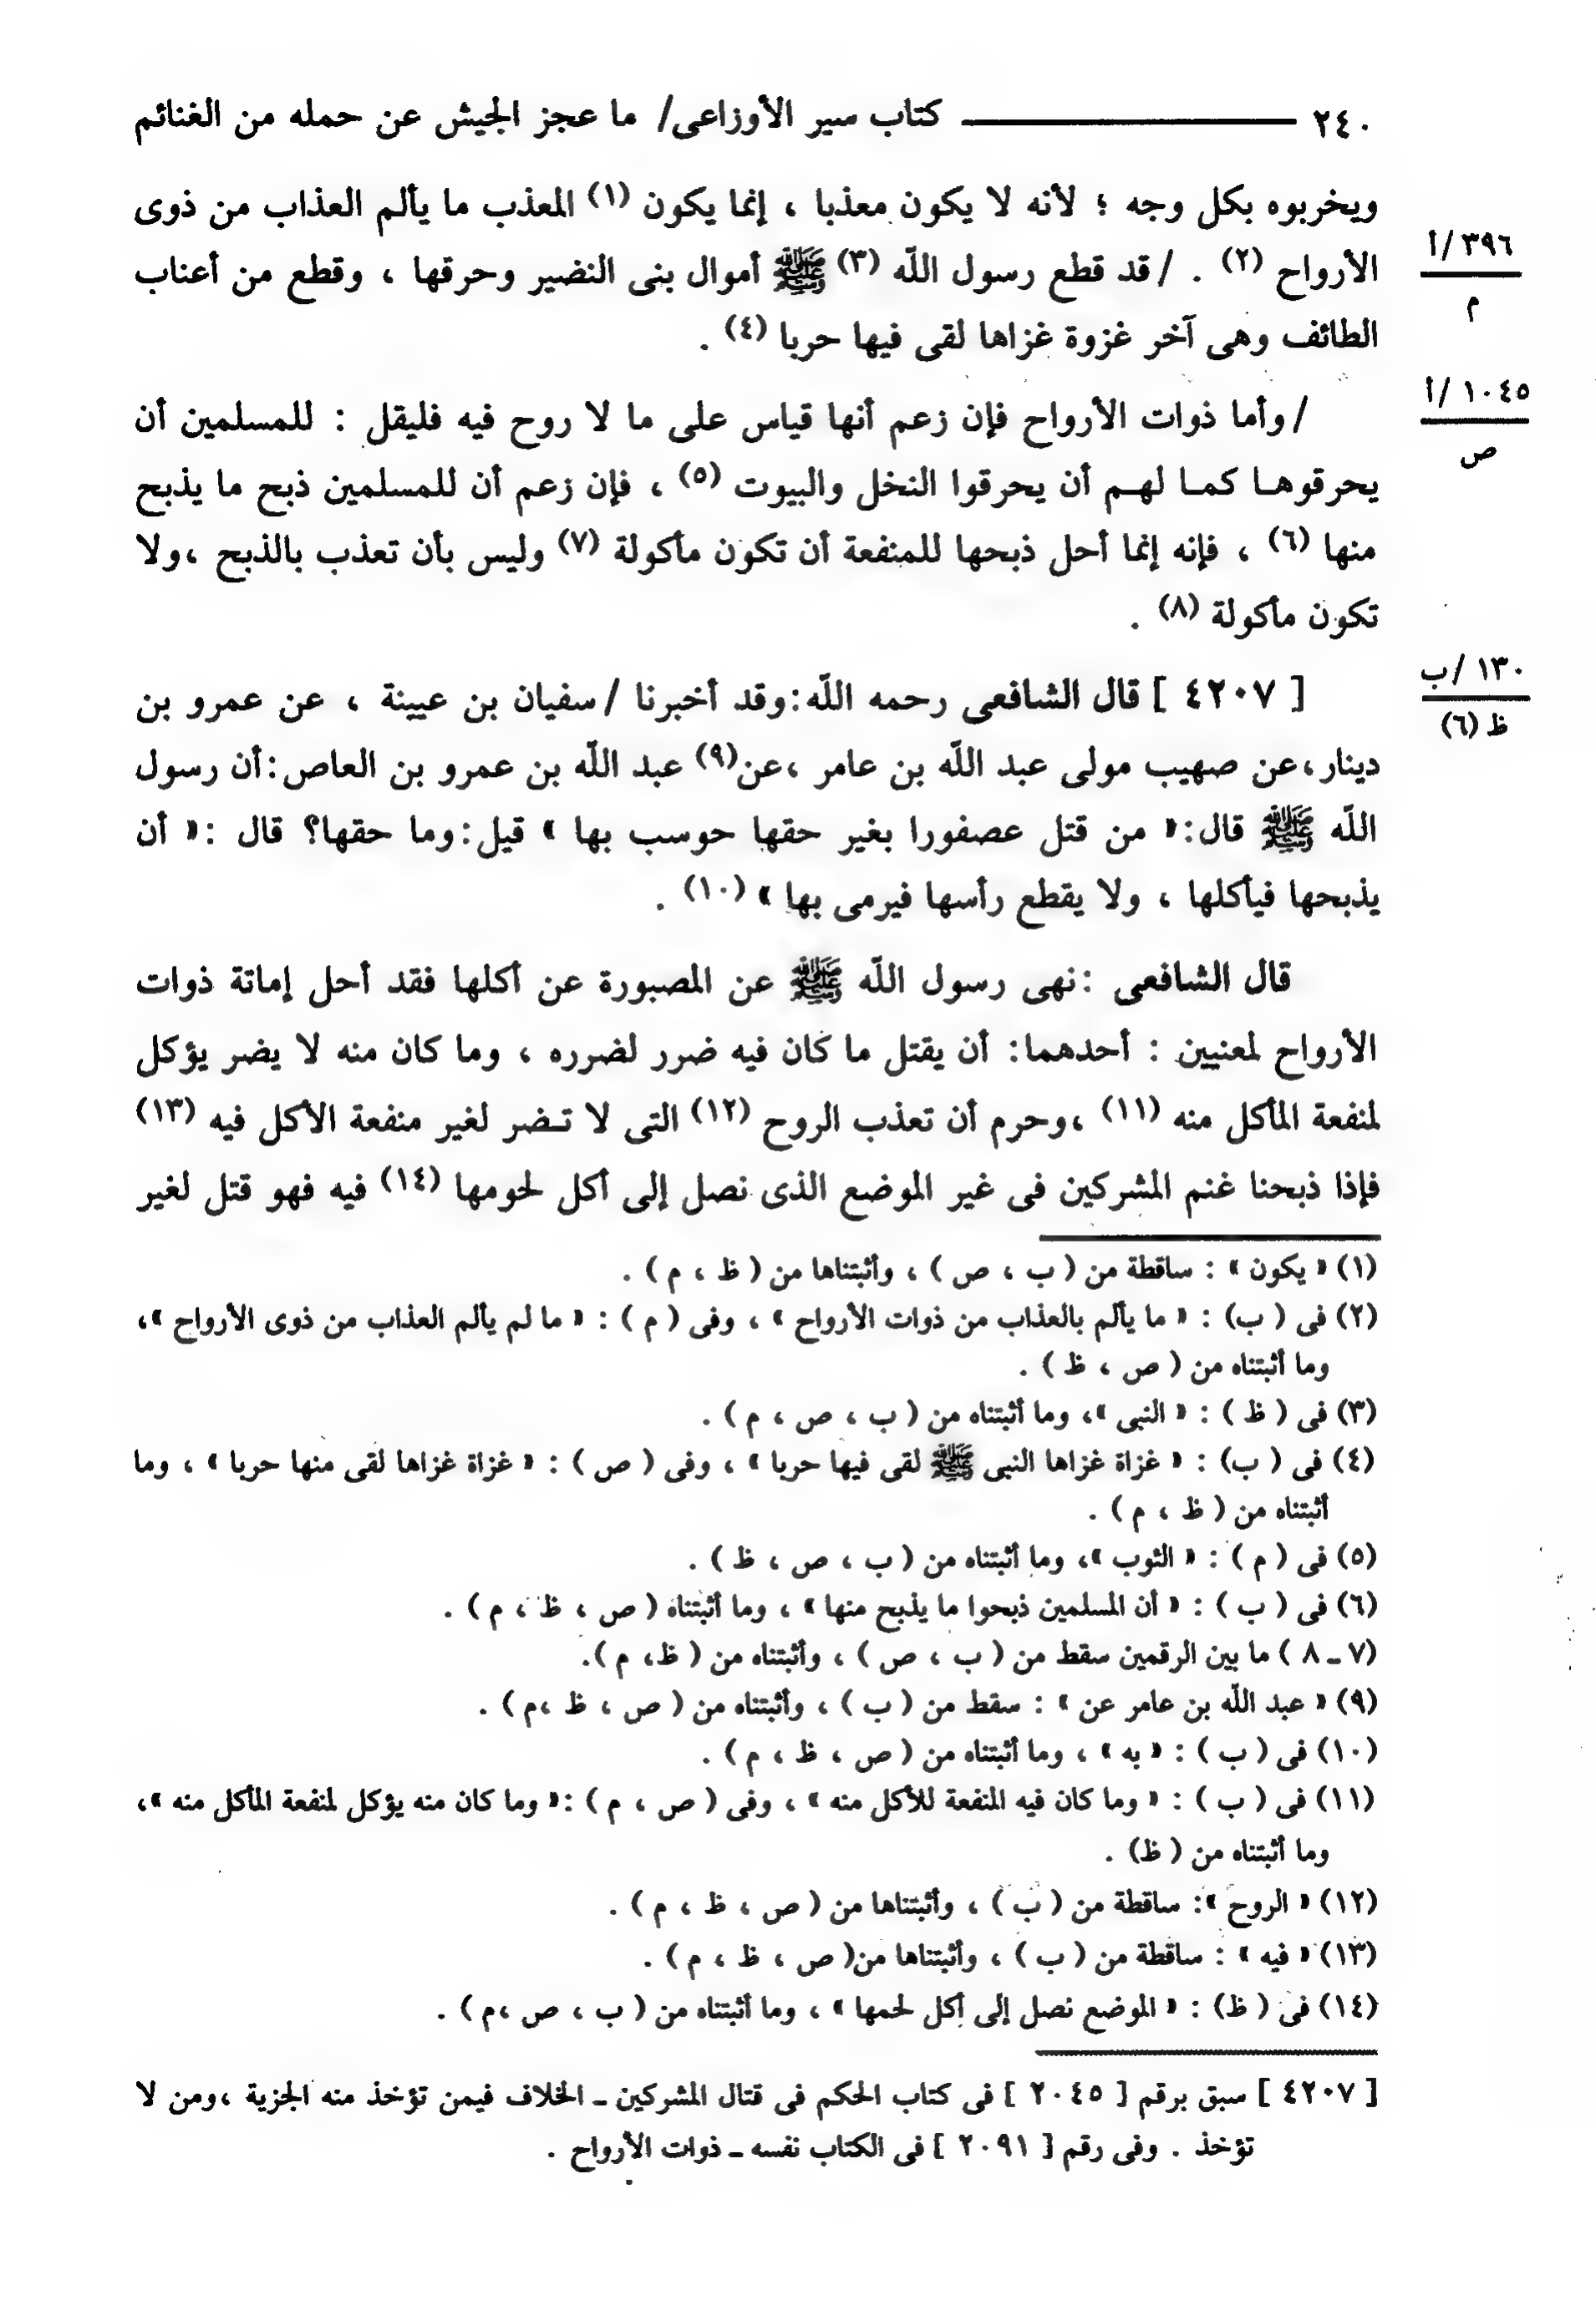 ٢٤٠ كتاب سير الأوزاعى/ ما عجز الجيش عن حمله من الغنائم
ويخربوه بكل وجه ؛ لأنه لا يكون معذبا ، إنما يكون (١) المعذب ما يألم العذاب من ذوى
٣٩٦/أ
م
الأرواح (٢) . / قد قطع رسول اللّه (٣) ﷺ أموال بنى النضير وحرقها ، وقطع من أعناب
الطائف وهى آخر غزوة غزاها لقى فيها حربا (٤) .
١٠٤٥/أ
ص
/ وأما ذوات الأرواح فإن زعم أنها قياس على ما لا روح فيه فليقل : للمسلمين أن
يحرقوهـا كمـا لهـم أن يحرقوا النخل والبيوت (٥) ، فإن زعم أن للمسلمين ذبح ما يذبح
منها (٦) ، فإنه إنما أحل ذبحها للمنفعة أن تكون مأكولة (٧) وليس بأن تعذب بالذبح ،ولا
تكون مأكولة (٨) .
١٣٠/ب
ظ (٦)
[ ٤٢٠٧ ] قال الشافعى رحمه اللّه:وقد أخبرنا / سفيان بن عيينة ، عن عمرو بن
دينار،عن صهيب مولى عبد اللّه بن عامر ،عن(٩) عبد اللّه بن عمرو بن العاص:أن رسول
اللّه ﷺ قال:« من قتل عصفورا بغير حقها حوسب بها » قيل:وما حقها؟ قال :« أن
يذبحها فيأكلها ، ولا يقطع رأسها فيرمى بها » (١٠) .
قال الشافعى :نهى رسول اللّه ﷺ عن المصبورة عن أكلها فقد أحل إماتة ذوات
الأرواح لمعنيين : أحدهما: أن يقتل ما كان فيه ضرر لضرره ، وما كان منه لا يضر يؤكل
لمنفعة المأكل منه (١١) ،وحرم أن تعذب الروح (١٢) التى لا تـضر لغير منفعة الأكل فيه (١٣)
فإذا ذبحنا غنم المشركين فى غير الموضع الذى نصل إلى أكل لحومها (١٤) فيه فهو قتل لغير
(١) « يكون » : ساقطة من ( ب ، ص ) ، وأثبتناها من ( ظ ، م ) .
(٢) فى ( ب) : « ما يألم بالعذاب من ذوات الأرواح » ، وفى ( م ) : « ما لم يألم العذاب من ذوى الأرواح »،
وما أثبتناه من ( ص ، ظ ) .
(٣) فى ( ظ ) : « النبى »، وما أثبتناه من ( ب ، ص ، م ) .
(٤) فى ( ب) : « غزاة غزاها النبى ﷺ لقى فيها حربا » ، وفى ( ص ) : « غزاة غزاها لقى منها حربا » ، وما
أثبتناه من ( ظ ، م ) .
(٥) فى ( م ) : « الثوب »، وما أثبتناه من ( ب ، ص ، ظ ) .
(٦) فى ( ب ) : « أن المسلمين ذبحوا ما يذبح منها » ، وما أثبتناه ( ص ، ظ ، م ) .
(٧ ـ ٨ ) ما بين الرقمين سقط من ( ب ، ص ) ، وأثبتناه من ( ظ، م ).
(٩) « عبد اللّه بن عامر عن » : سقط من ( ب ) ، وأثبتناه من ( ص ، ظ ،م ) .
(١٠) فى ( ب ) : « به » ، وما أثبتناه من ( ص ، ظ ، م ) .
(١١) فى ( ب ) : « وما كان فيه المنفعة للأكل منه » ، وفى ( ص ، م ) :« وما كان منه يؤكل لمنفعة المأكل منه »،
وما أثبتناه من ( ظ) .
(١٢) « الروح »: ساقطة من ( ب ) ، وأثبتناها من ( ص ، ظ ، م ) .
(١٣) « فيه » : ساقطة من ( ب ) ، وأثبتناها من( ص ، ظ ، م ) .
(١٤) فى ( ظ) : « الموضع نصل إلى أكل لحمها » ، وما أثبتناه من ( ب ، ص ،م ) .
[ ٤٢٠٧ ] سبق برقم [ ٢٠٤٥ ] فى كتاب الحكم فى قتال المشركين ـ الخلاف فيمن تؤخذ منه الجزية ،ومن لا
تؤخذ . وفى رقم [ ٢٠٩١ ] فى الكتاب نفسه ـ ذوات الأرواح .